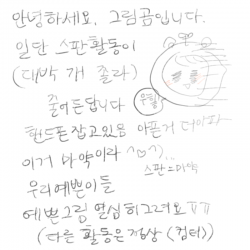 안녕하세요, 그림곰입니다.
일단 스판활동이
(대박 개 졸라)
줄어든답니다
우울
핸드폰잡고있음 아픈거 더아파
이거 마약이라 ^♡^;...
스판느마약
우리예쁜이들
예쁜그림 열심히그려요ㅠㅠ
(다른 활동은정상 (컴터))